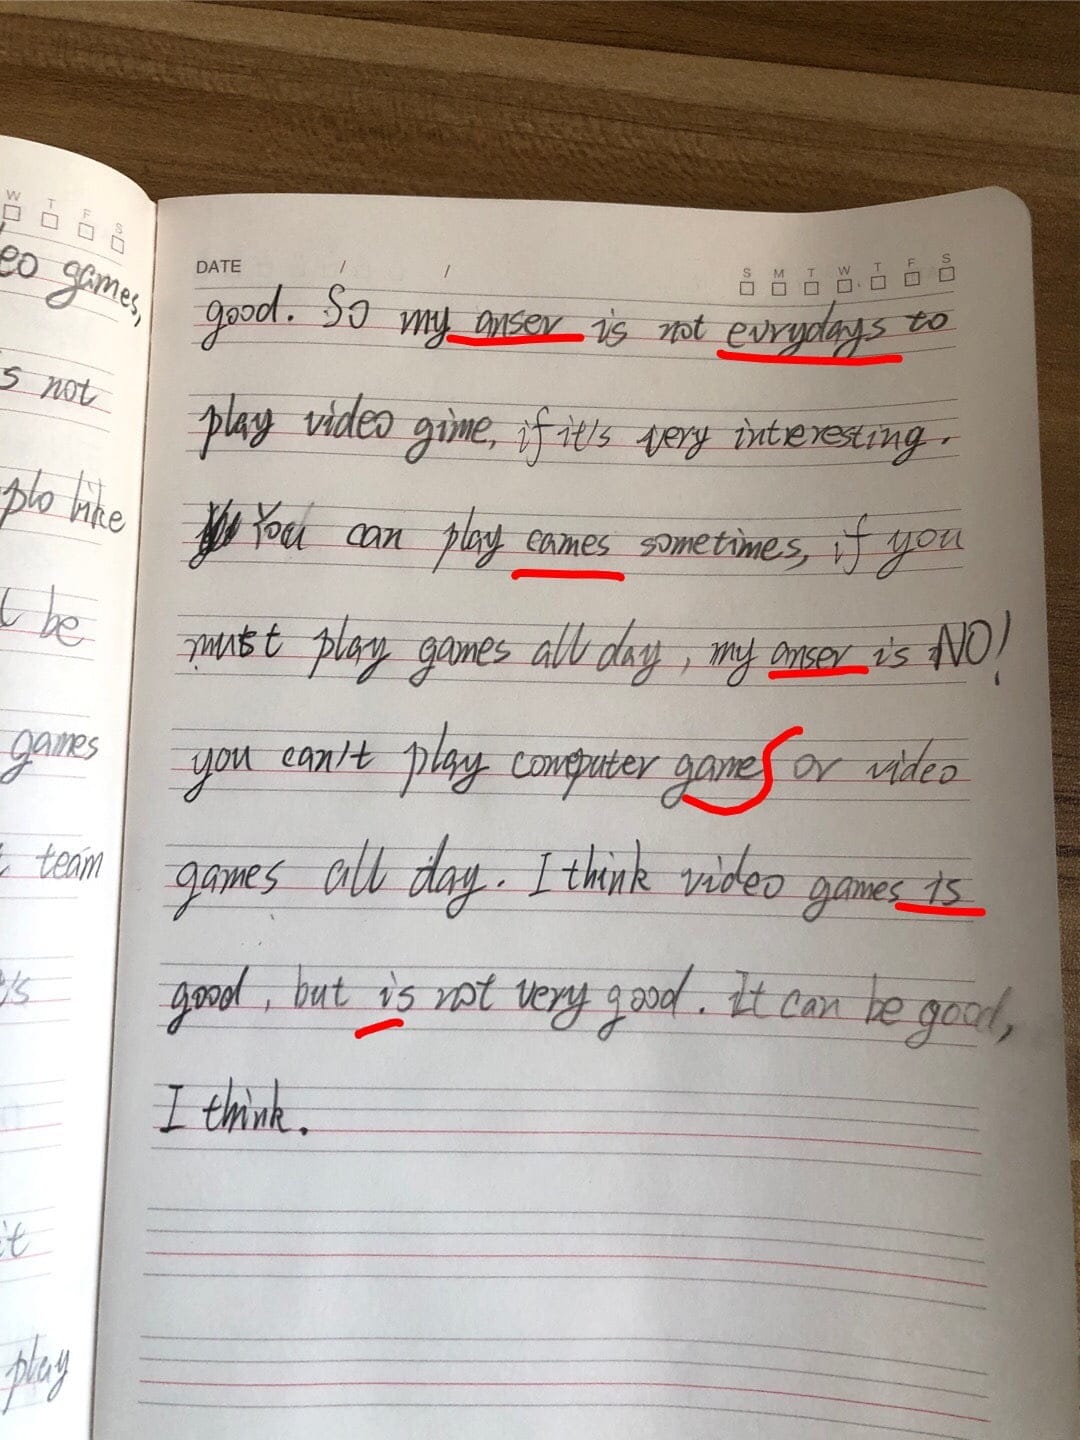 W T F S
eo games,
s not
plo like
t be
games
team
's
it
play
DATE / / S M T W T F S
good. So my anser is not evrydays to
play video gime, if it's very interesting.
You can play eames sometimes, if you
must play games all day, my anser is NO!
you can't play computer games or video
games all day. I think video games is
good, but is not very good. It can be good,
I think.